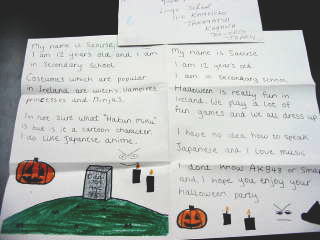 School
Kagawa
Japan
My name is Saoirse
I am 12 years old and I am
in secondary school
Costumes which are popular
in Ireland are witchs, Vampires
princesses and Ninjas.
I'm not sure what "Hatsun miku"
is but is it a cartoon character
I do like Japanese anime.
My name is Saoirse
I am 12 years old
I am in secondary school
Halloween is really fun in
Ireland. We play a lot of
fun games and we all dress up
I hope no idea how to speak
Japanese and I love music
I dont know AKB48 or Smap
and I hope you enjoy your
halloween party